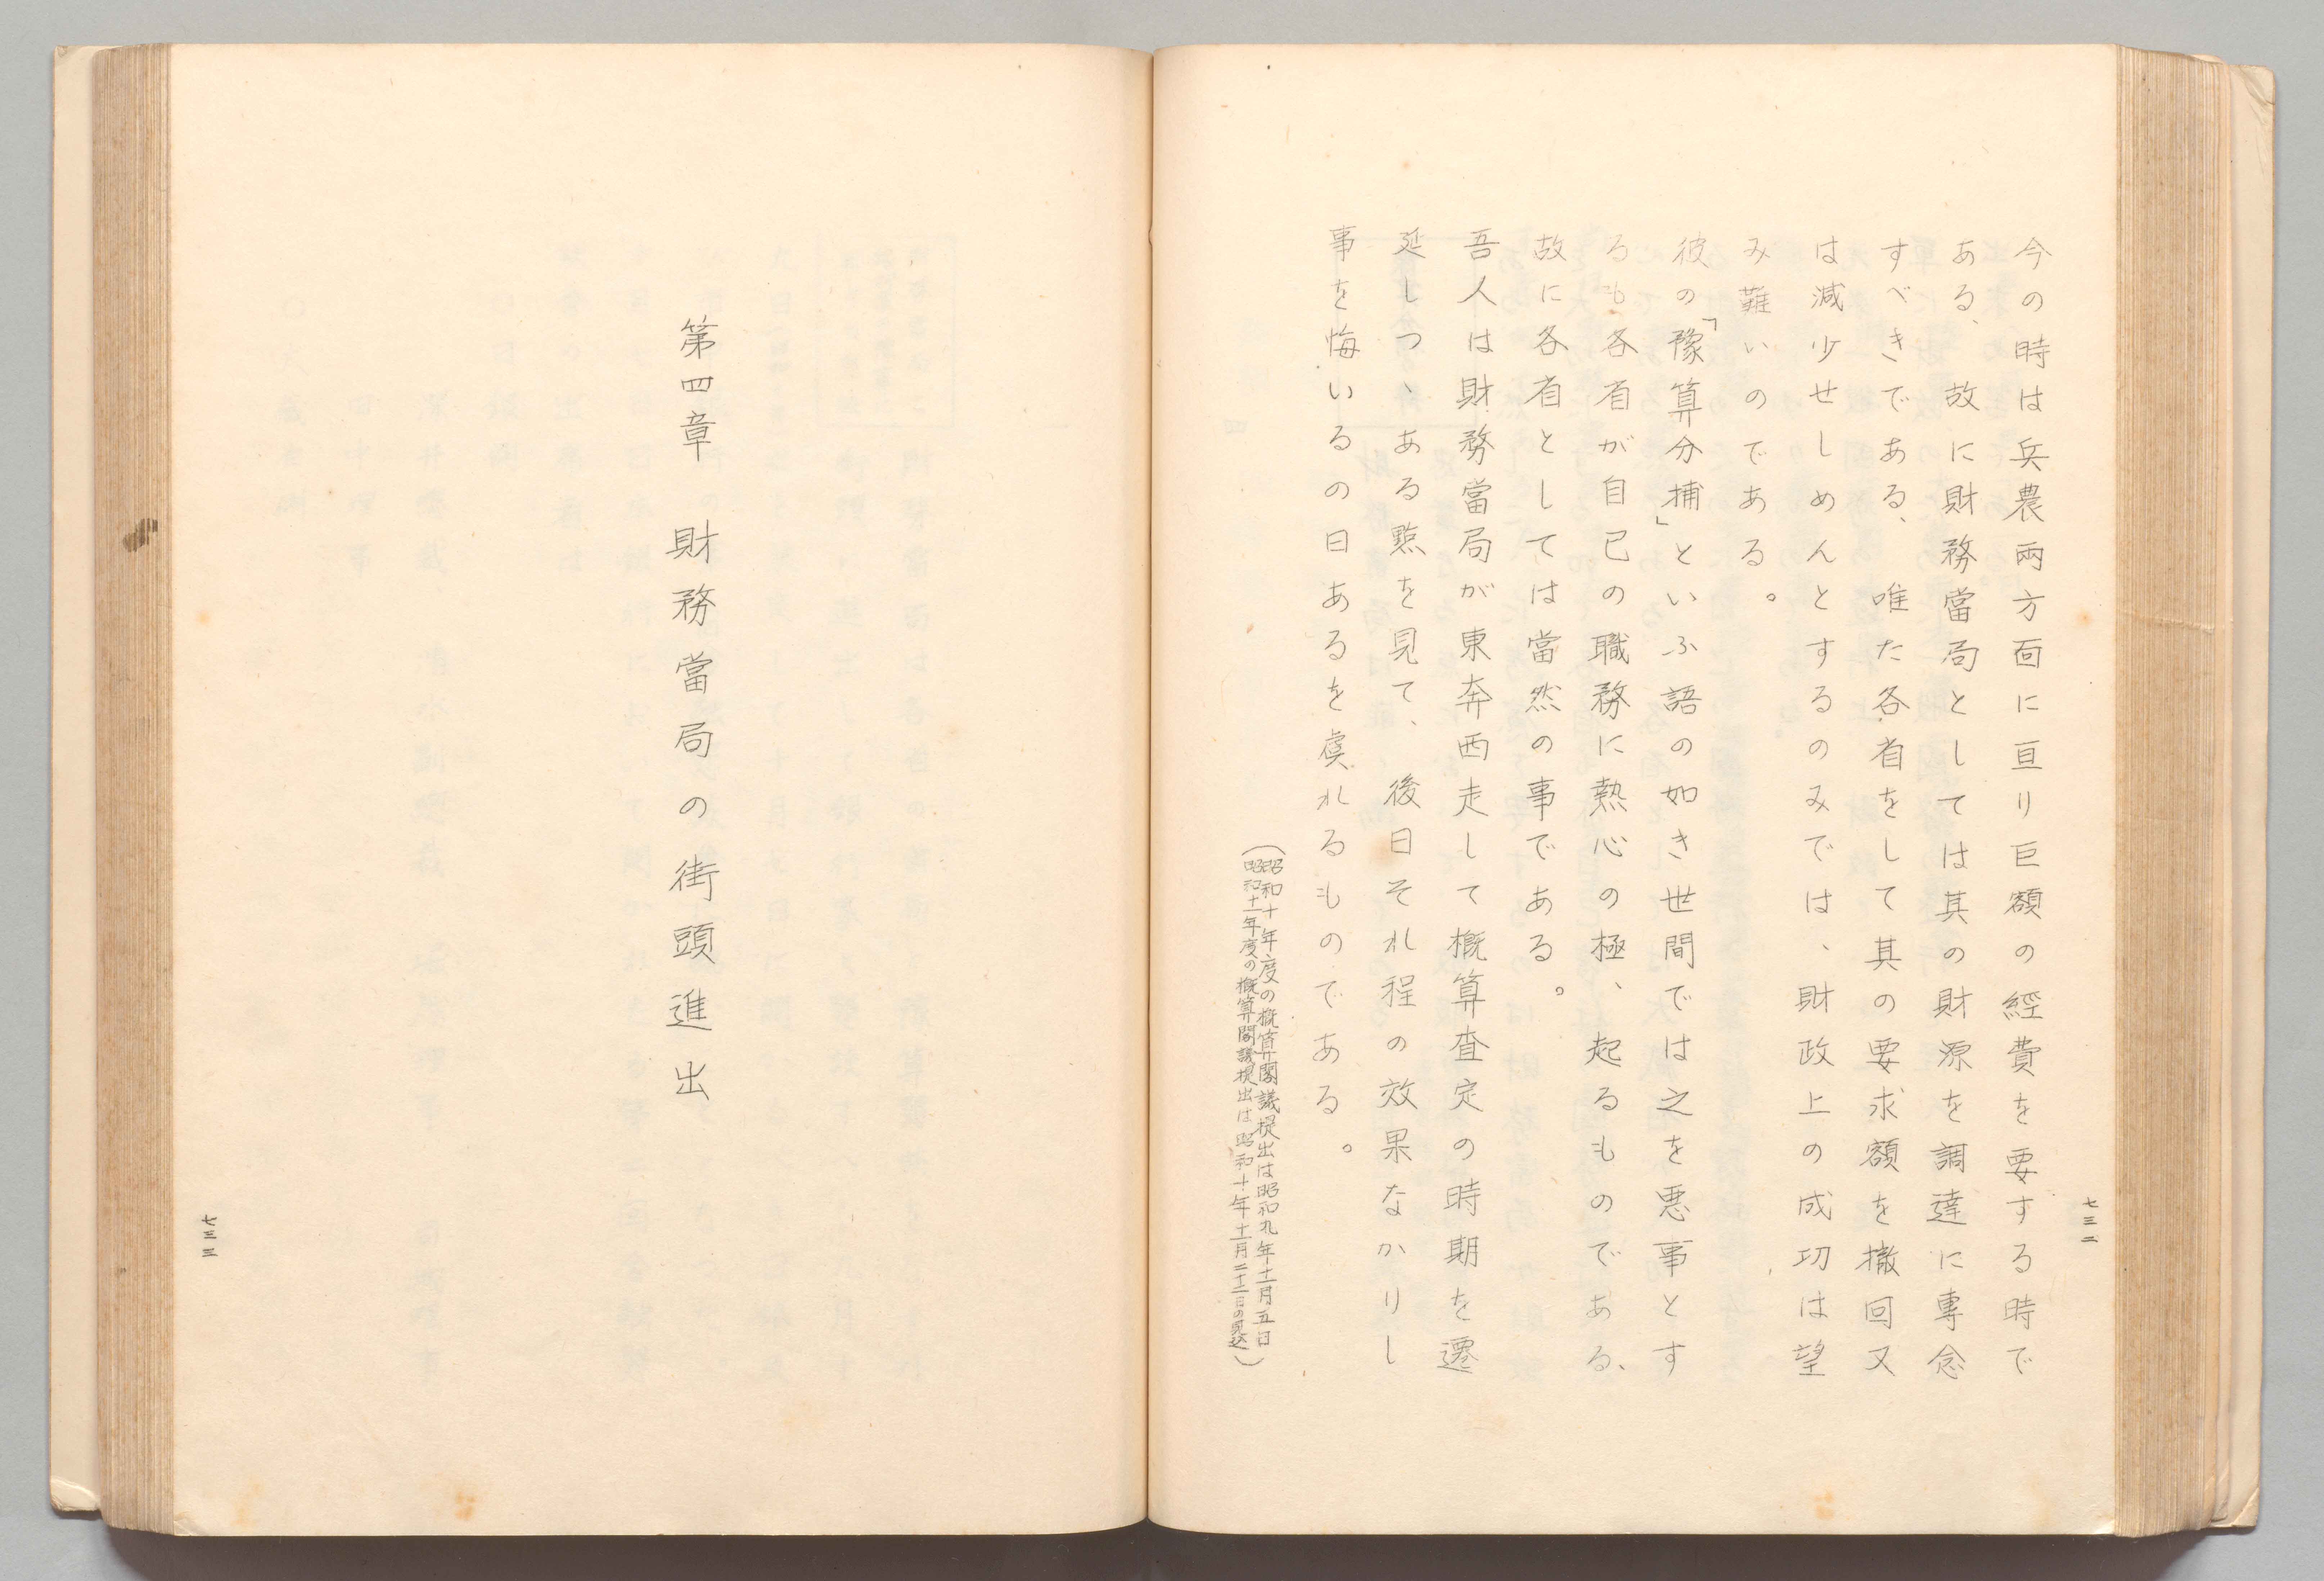 今の時は兵農兩方面に亘り巨額の經費を要する時で
ある、故に財務當局としては其の財源を調達に專念
すべきである、唯た各省をして其の要求額を撤回又
は減少せしめんとするのみでは、財政上の成功は望
み難いのである。
彼の「豫算分捕」といふ語の如き世間では之を悪事とす
るも各省が自己の職務に熱心の極、起るものである、
故に各省としては當然の事である。
吾人は財務當局が東奔西走して概算査定の時期を遷
延しつゝある㸃を見て、後日それ程の效果なかりし
事を悔いるの日あるを虞れるものである。
(昭和十年度の概算閣議提出は昭和九年十一月五日
昭和十一年度の概算閣議提出は昭和十年十一月二十二日の見込)
七三二
第四章 財務當局の街頭進出
七三三